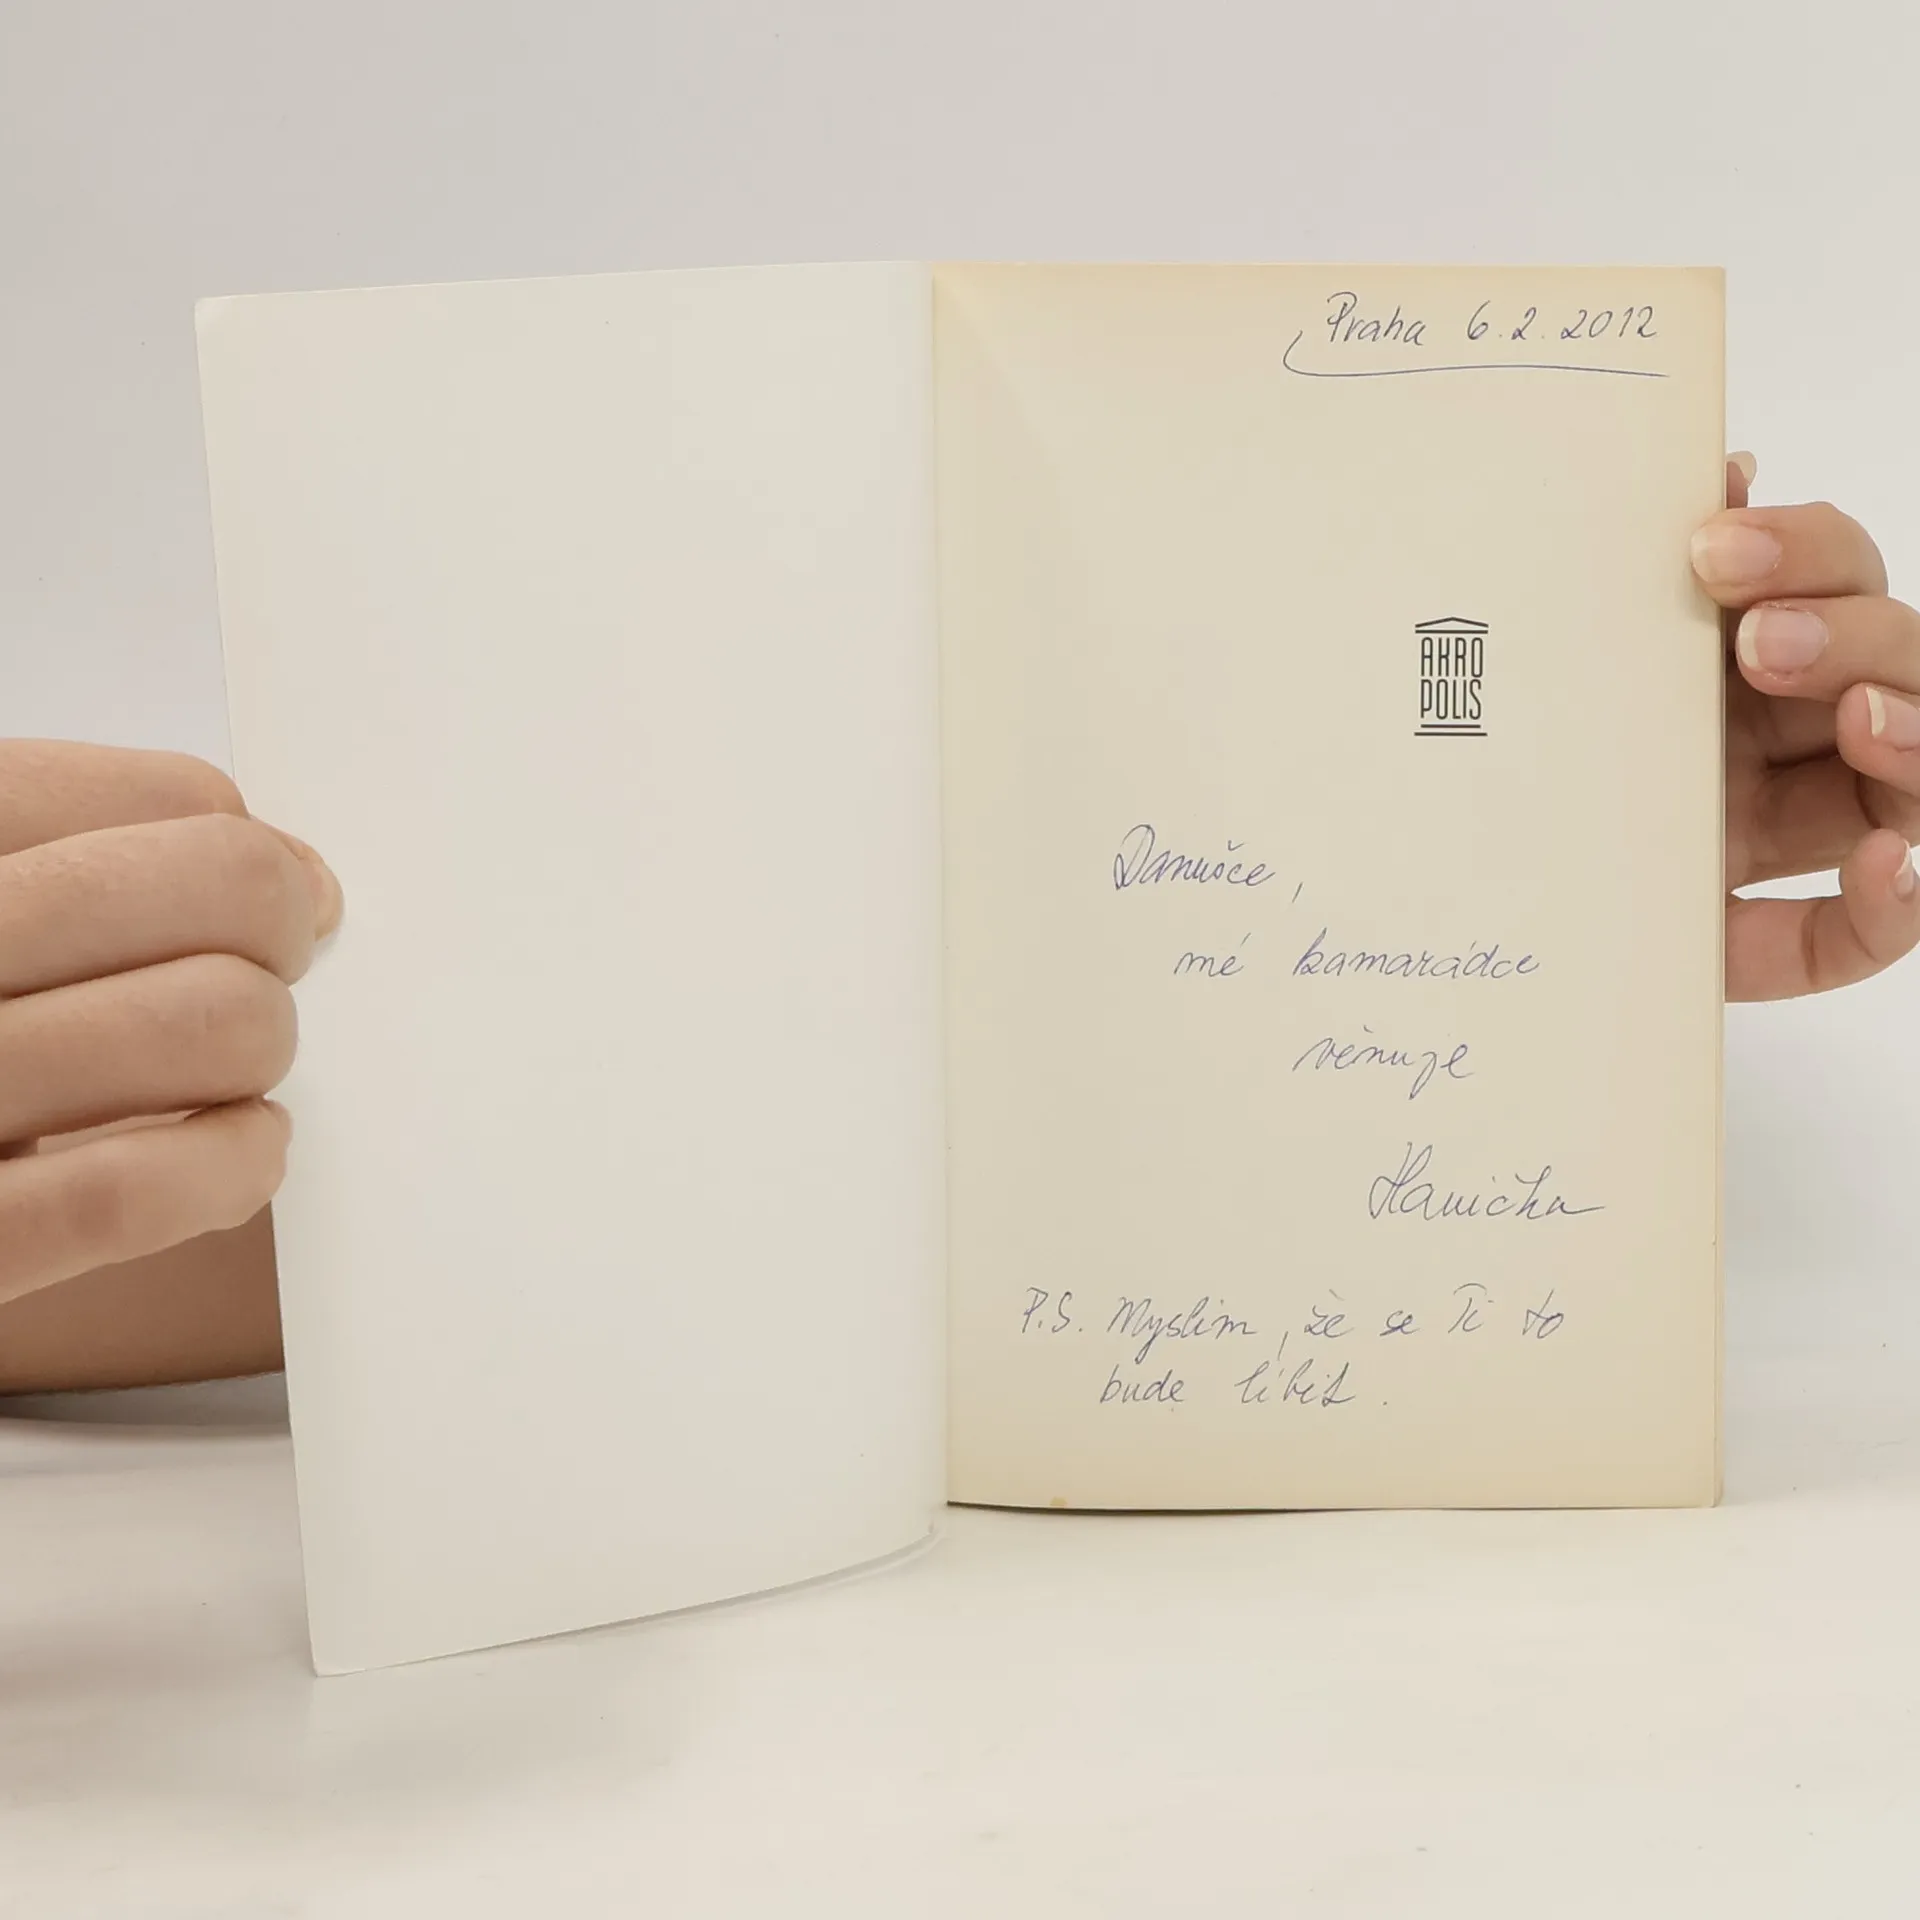 Praha 6.2.2012
AKRO
POLIS
Danušce,
mé kamarádce
věnuje
Hanička
P.S. Myslím, že se Ti to
bude líbit.